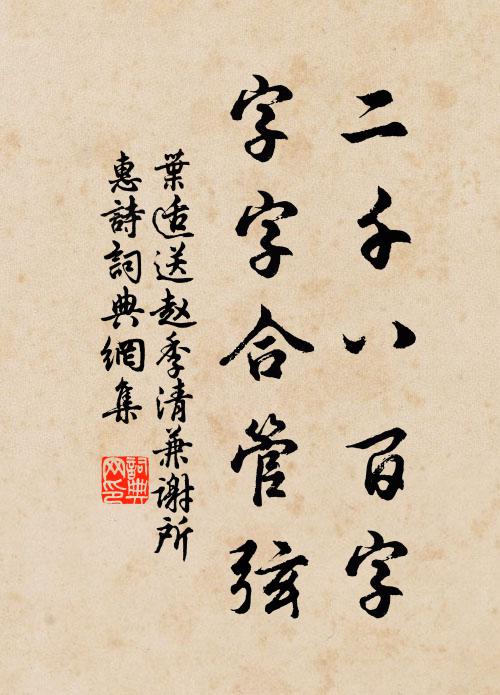 二千八百字
字字合管弦
葉适送赵季清兼谢所
惠詩詞典網集
詞典
网印